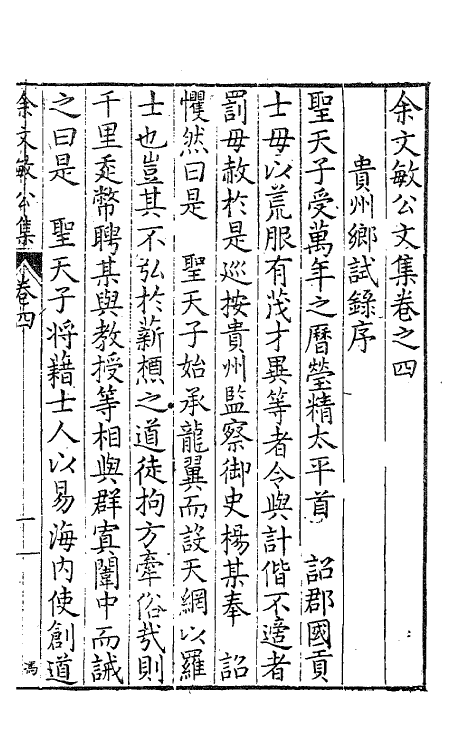 余文敏公文集卷之四
貴州鄉試錄序
聖天子受萬年之曆瑩精太平首　詔郡國貢
士毋以荒服有茂才異等者令與計偕不適者
罰毋赦於是巡按貴州監察御史楊某奉　詔
懼然曰是　聖天子始承龍翼而設天網以羅
士也豈其不弘於薪槱之道徒拘方牽俗㢤則
千里乘幣聘某與教授等相與群寘闈中而誡
之曰是　聖天子將藉士人以易海內使創道
余文敏公集　卷四　一